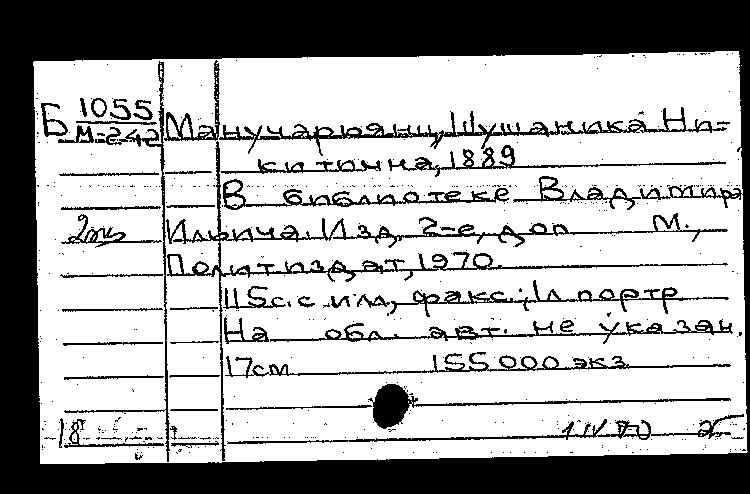 Б 1055 Манучарьянц, Шушаника Ни-
М-242 китична, 1889
В библиотеке Владимира
2экз Ильича. Изд. 2-е, доп М.,
Политиздат, 1970.
115с. с ил., факс.; 1л портр
На обл. авт. не указан.
17см 155000 экз
18 1 IV 70